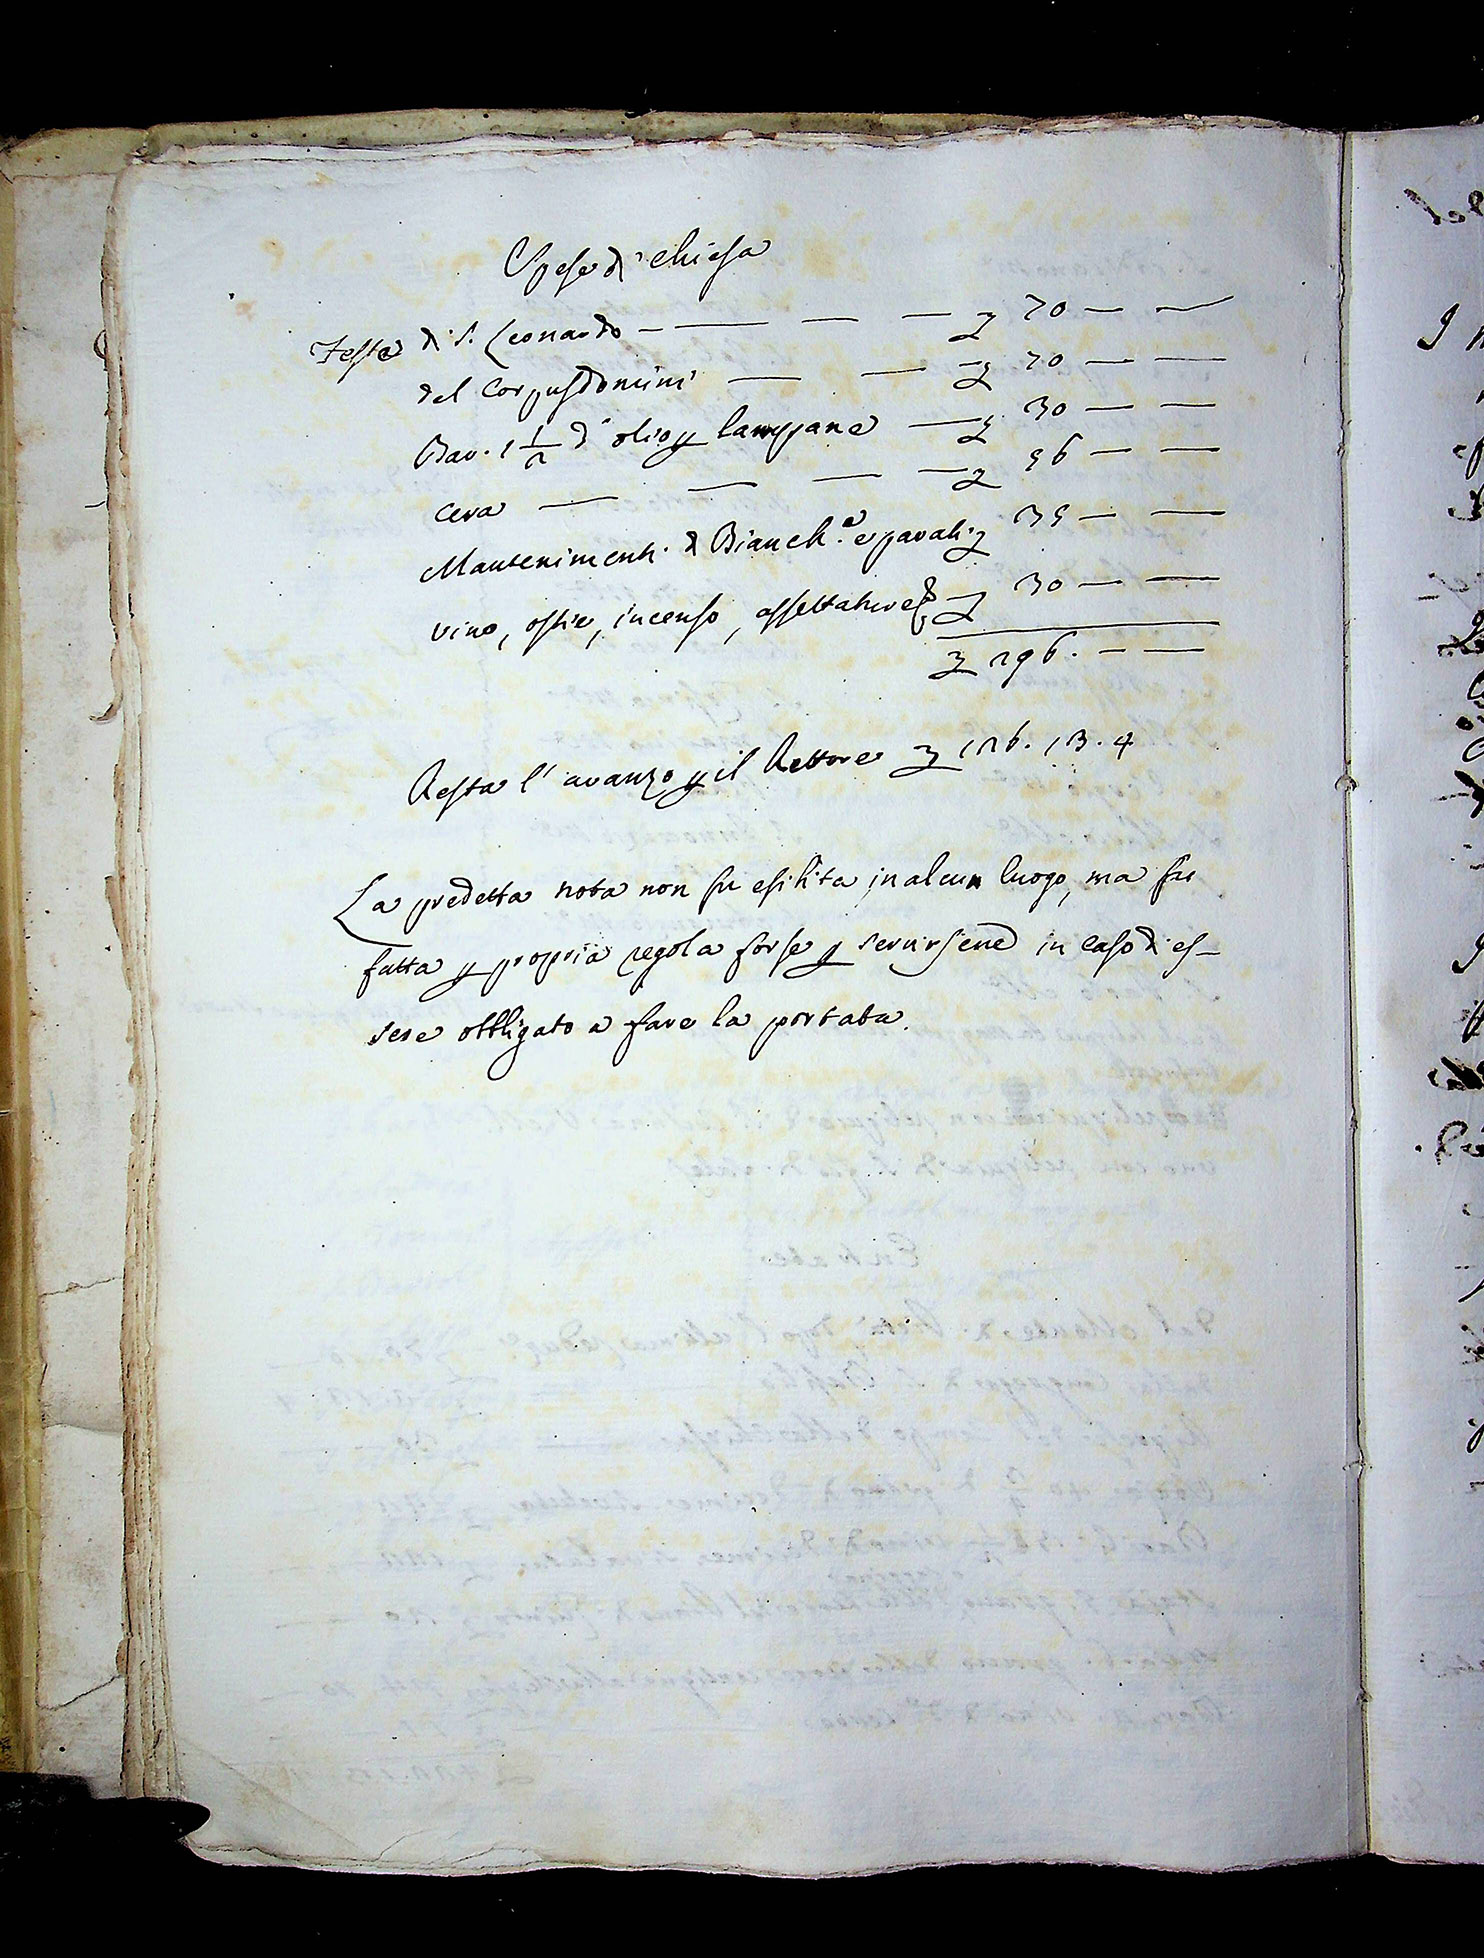 Spese di Chiesa
Feste di S. Leonardo — — — — £ 70 — —
del Corpusdomini — — — £ 70 — —
Bar. 1 1/2 d'olio p lampane — £ 30 — —
Cera — — — — £ 56 — —
Mantenimenti di Bianch.a e parati £ 35 — —
vino, ostie, incenso, assettature £ 30 — —
£ 296. — —
Resta l'avanzo p il Rettore £ 126. 13. 4
La predetta nota non fu esibita in alcun luogo, ma fu
fatta p propria regola forse p servirsene in caso di es-
sere obbligato a fare la portata.